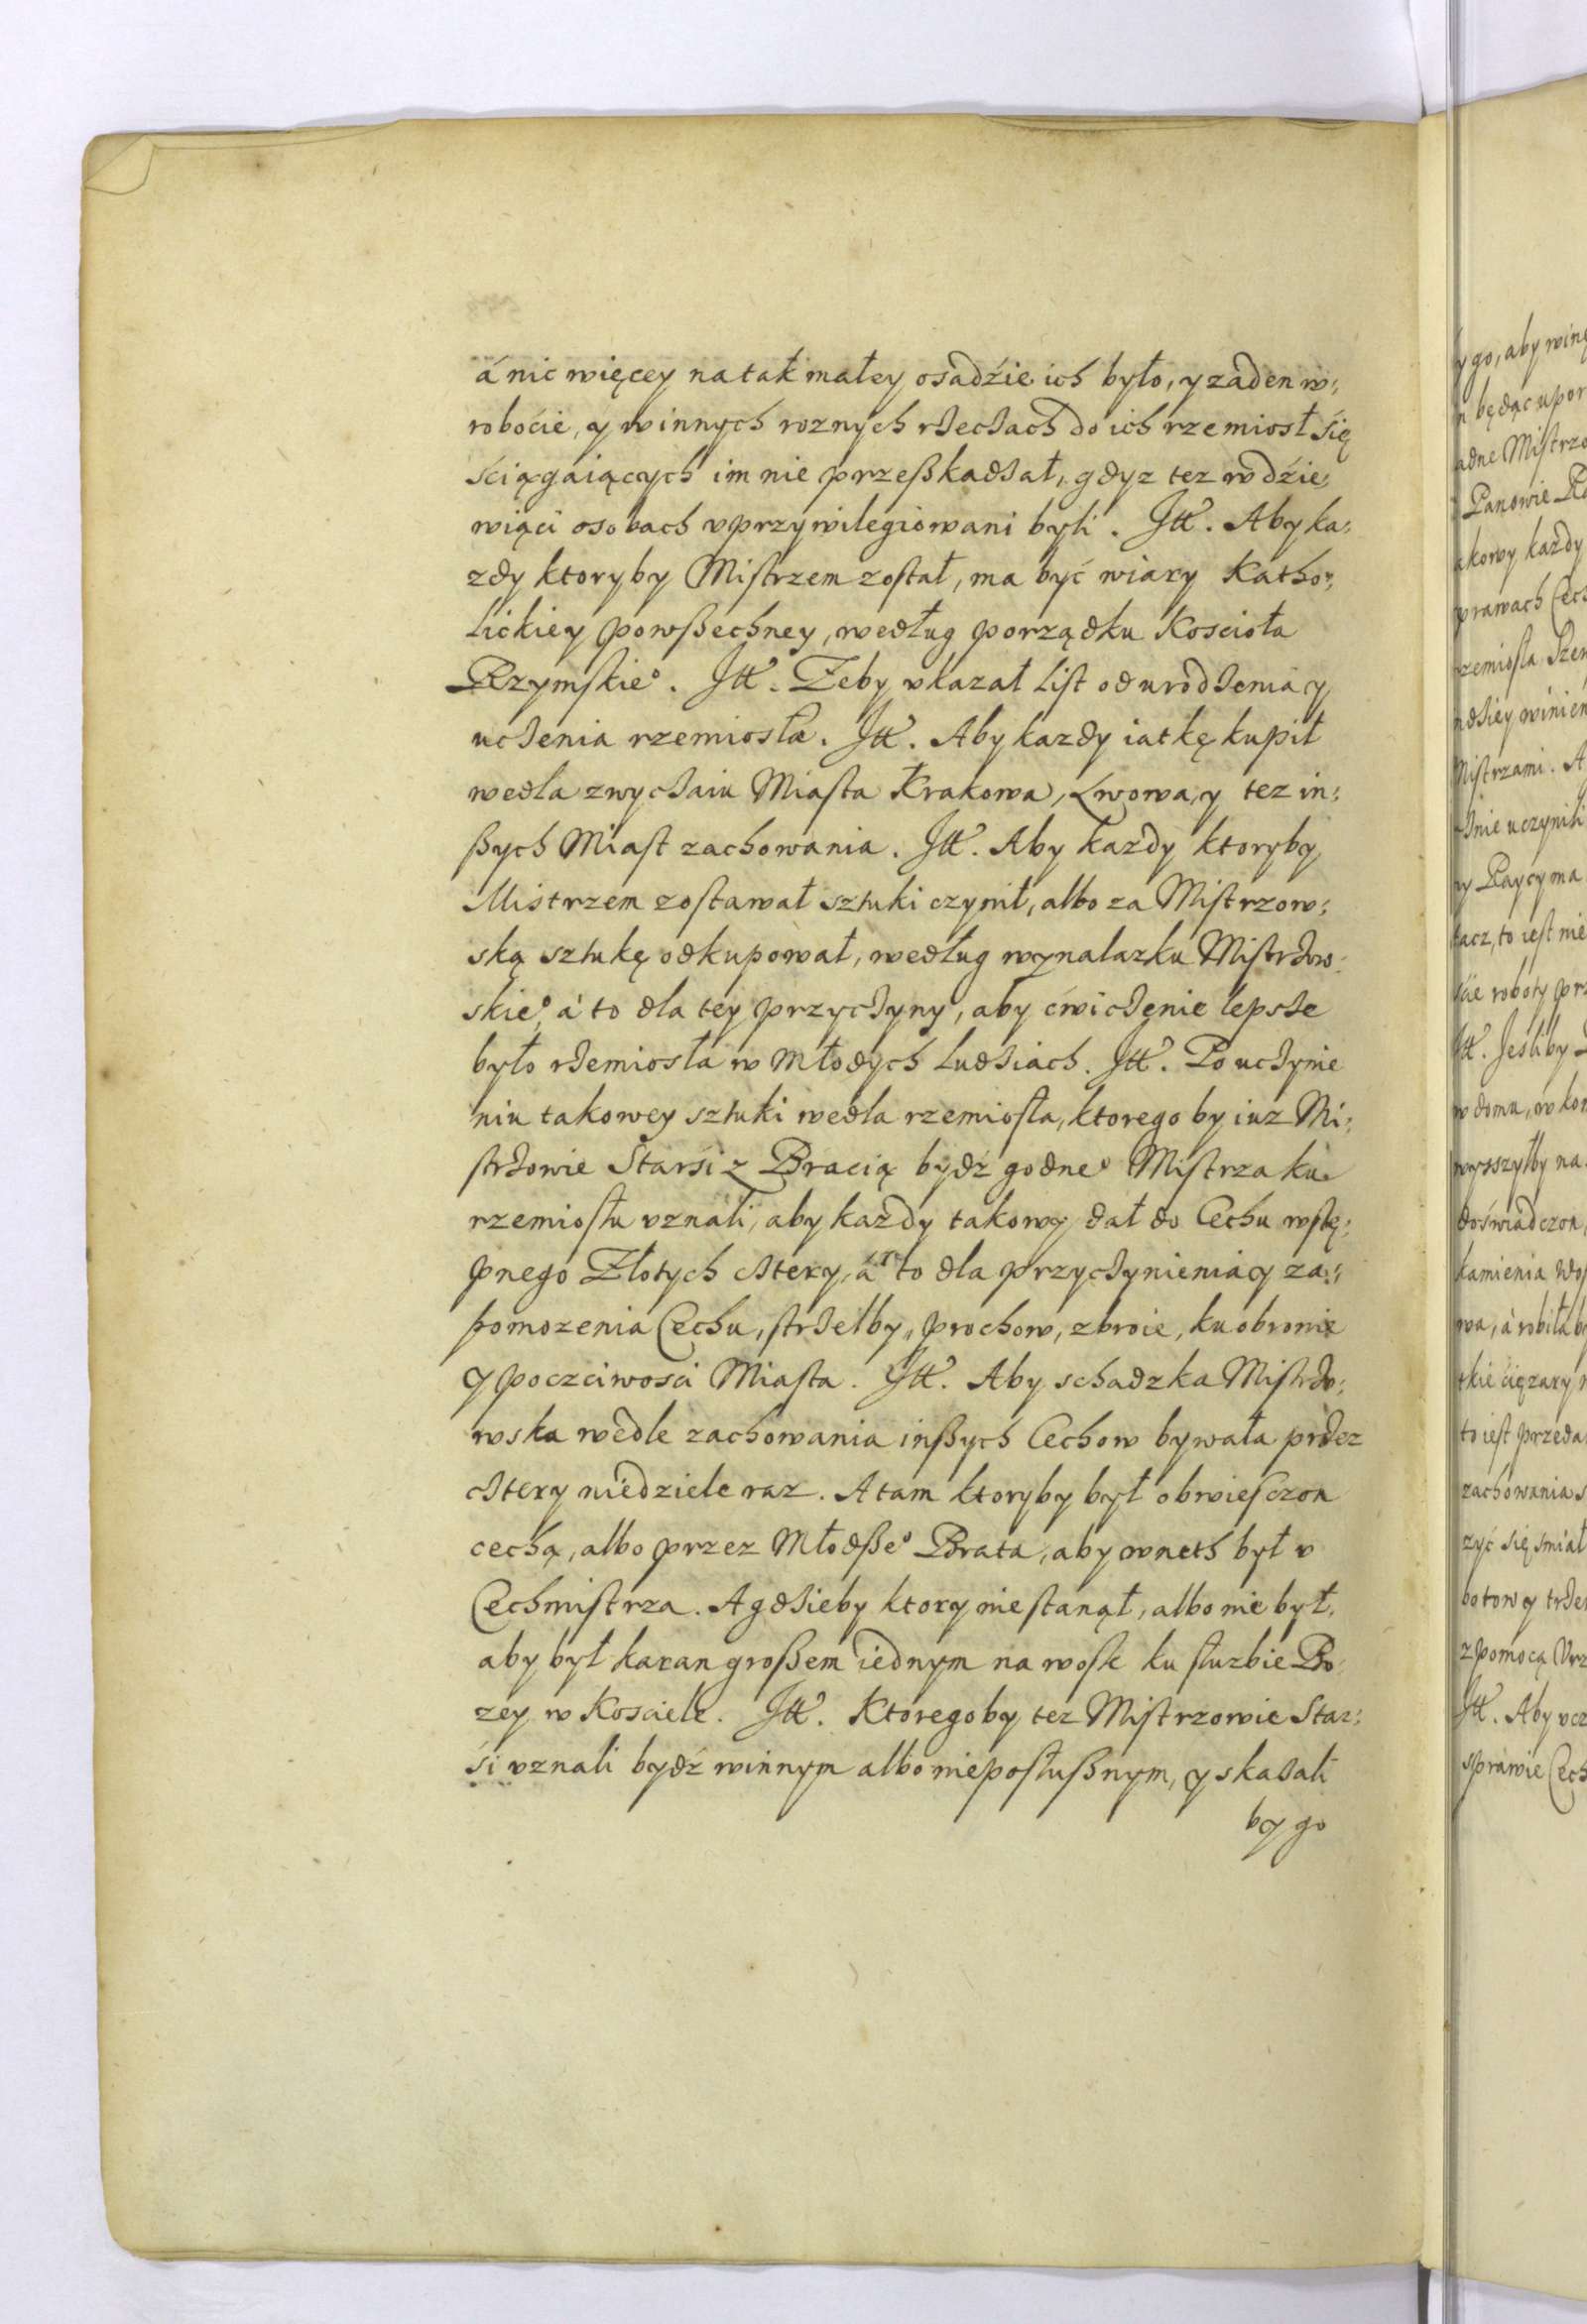 á nic więcey na tak małey osadźie ich było, y zaden w:
roboćie, y w innych roznych rzeczach do ich rzemiosł się
śćiągaiących im nie przeßkadzał, gdyz tez w dźie:
wiąći osobach vprzywilegiowani byli. Itt. Aby ka:
zdy ktoryby Mistrzem został, ma być wiary Katho:
lickiey powßechney, według porządku Koscioła
Rzymskie°. Itt. Zeby vkazał list od urodzenia y
uczenia rzemiosła. Itt. Aby kazdy iatkę kupił
wedla zwyczaiu Miasta Krakowa, Lwowa, y tez in:
ßych Miast zachowania. Itt. Aby kazdy ktoryby
Mistrzem zostawał sztuki czynił, albo za Mistrzow:
ską sztukę odkupował, według wynalazku Mistrzow:
skie°, á to dla tey przyczyny, aby ćwiczenie lepsze
było rzemiosła w Młodych ludziach. Itt. Po uczynie
niu takowey sztuki wedla rzemiosła, ktorego by iuz Mi:
strzowie Starśi z Bracią bydź godne° Mistrza ku
rzemiosłu vznali, aby kazdy takowy dał do Cechu wstę:
pnego Złotych cztery, á to dla przyczynienia y za:
pomozenia Cechu, strzelby, prochow, zbroie, ku obronie
y poczciwosci Miasta. Itt. Aby schadzka Mistrzo:
wska wedle zachowania inßych Cechow bywała przez
cztery niedziele raz. A tam ktoryby był obwiesczon
cechą, albo przez Młodße° Brata, aby wneth był v
Cechmistrza. A gdzieby ktory nie stanął, albo nie był,
aby był karan großem iednym na wosk ku słuzbie Bo:
zey w Kosciele. Itt. Ktoregoby tez Mistrzowie Star:
śi vznali bydź winnym albo nieposłußnym, y skazali
by go